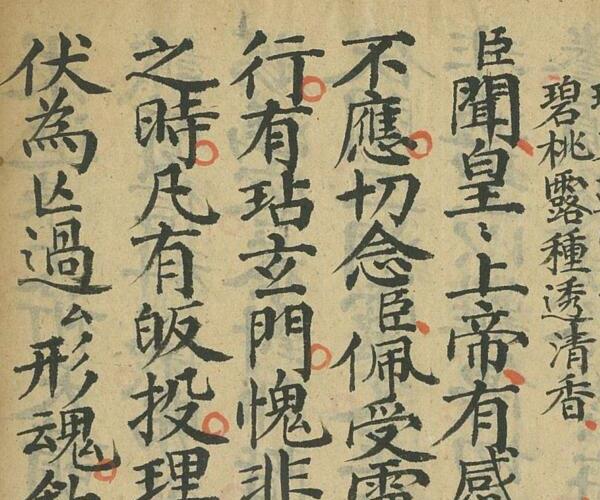 碧桃露種透清香
臣聞皇〻上帝有感
不應切念臣佩受
行有玷玄門愧非
之時凡有皈投理
伏為亾過厶形魂